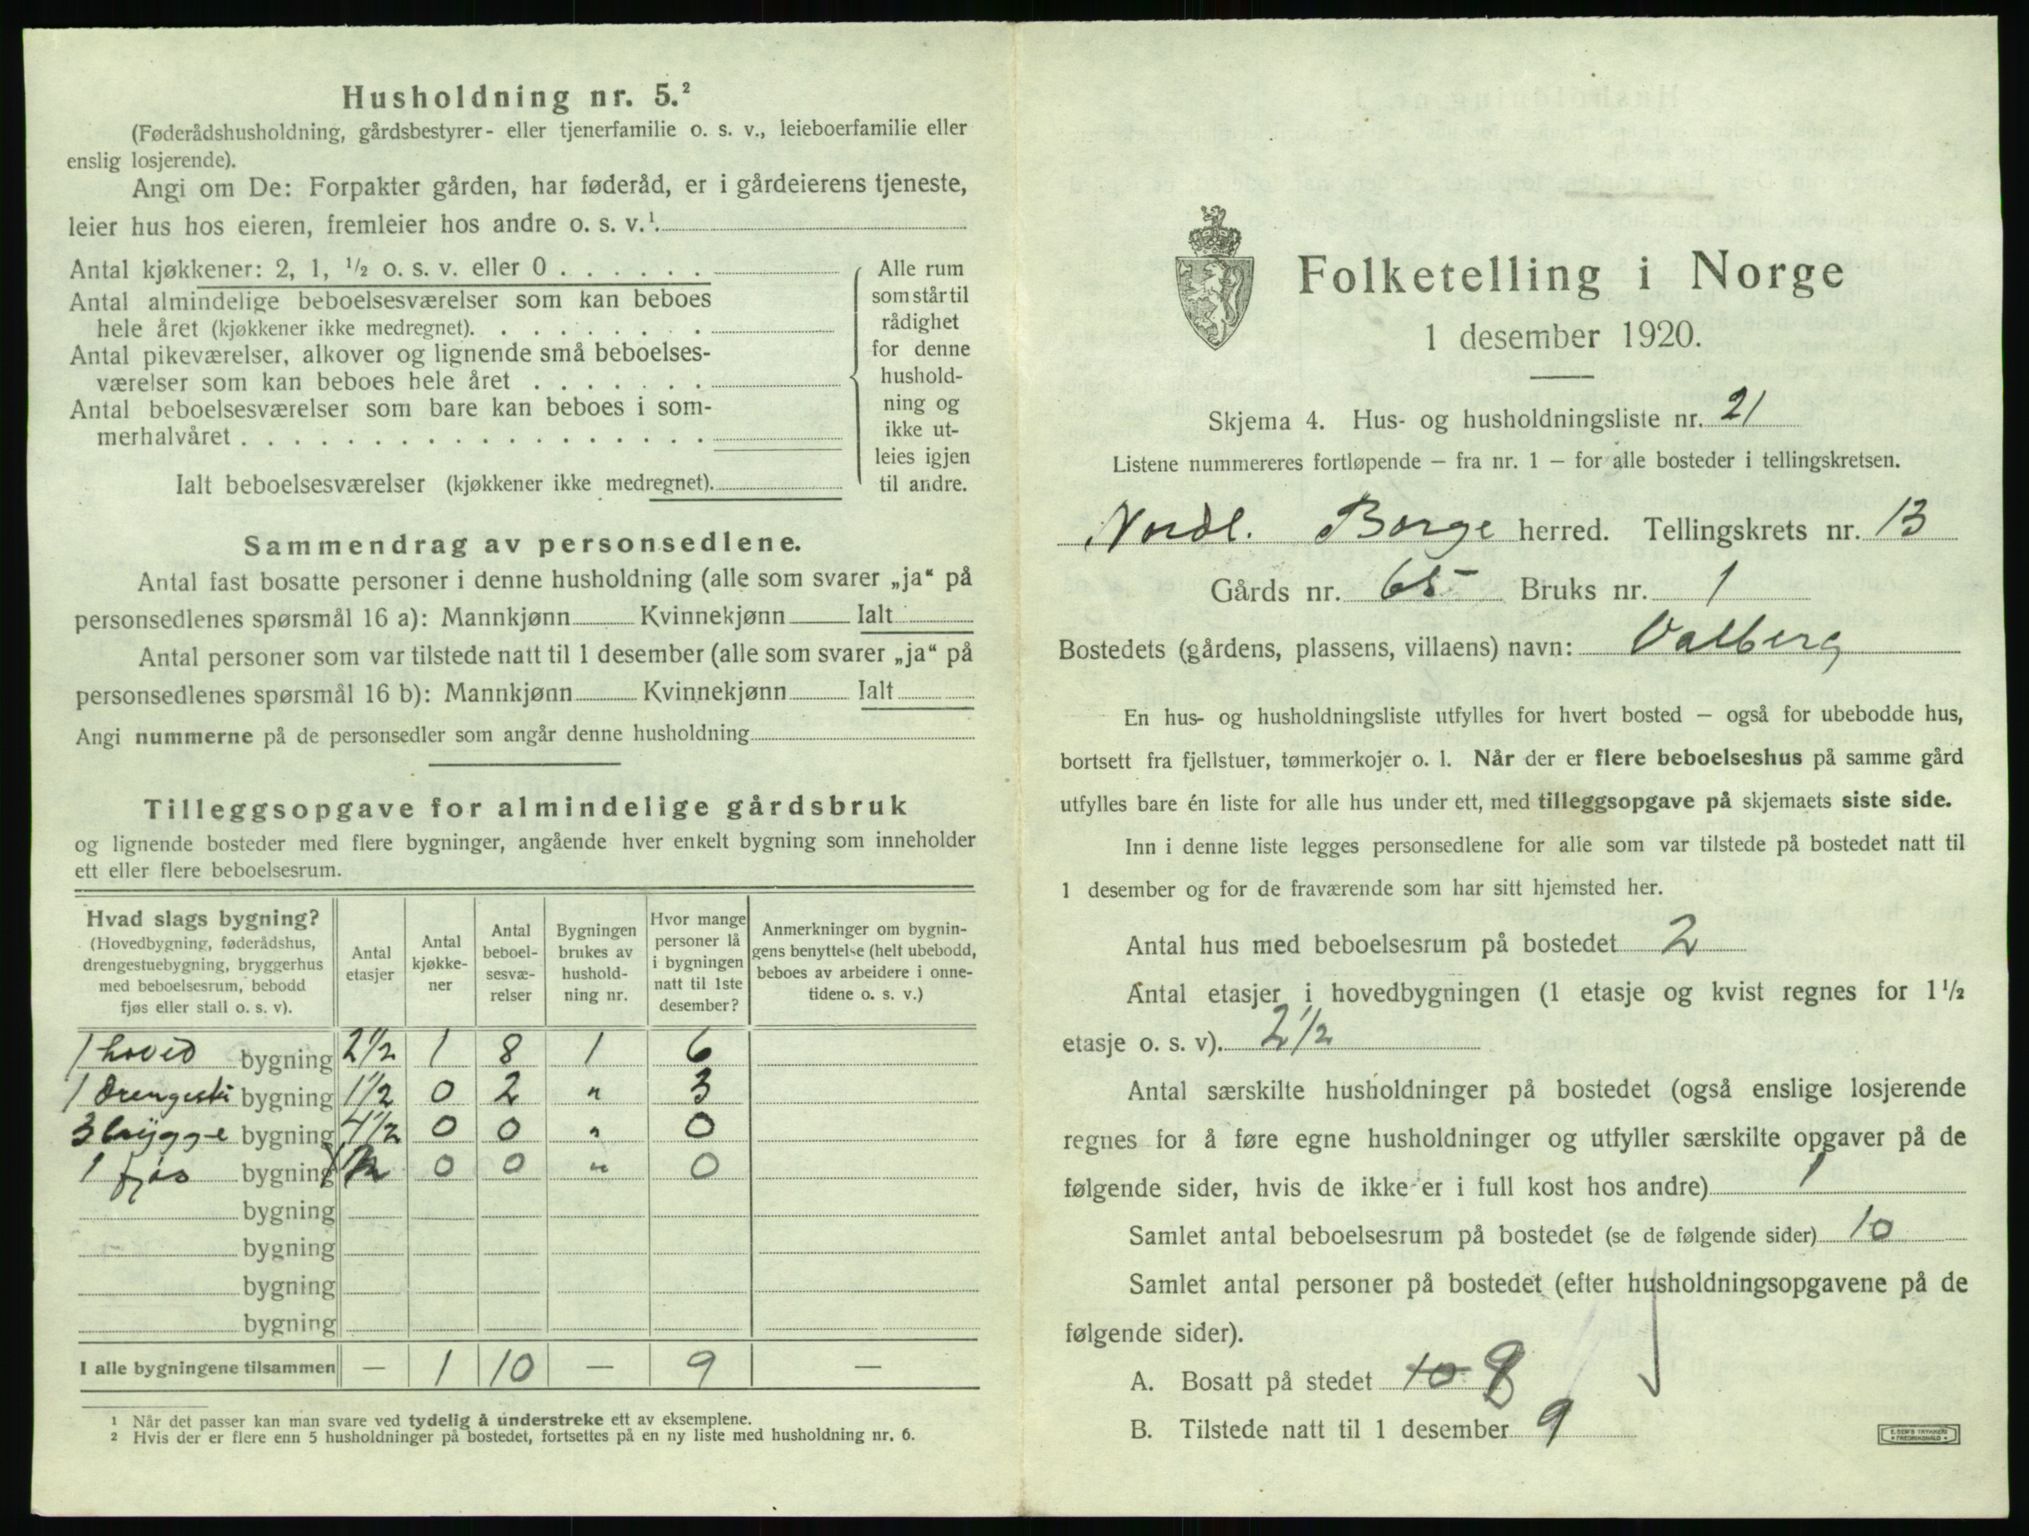 Husholdning nr. 5.²
(Føderådshusholdning, gårdsbestyrer- eller tjenerfamilie o. s. v., leieboerfamilie eller
enslig losjerende).
Angi om De: Forpakter gården, har føderåd, er i gårdeierens tjeneste,
leier hus hos eieren, fremleier hos andre o. s. v.¹.
Antal kjøkkener: 2, 1, ½ o. s. v. eller 0 . . . . . .
Antal almindelige beboelsesværelser som kan beboes
hele året (kjøkkener ikke medregnet). . . . . . . . .
Antal pikeværelser, alkover og lignende små beboelses-
værelser som kan beboes hele året . . . . . . .
Antal beboelsesværelser som bare kan beboes i som-
merhalvåret . . . . . . . . . . . . . . . . . .
Ialt beboelsesværelser (kjøkkener ikke medregnet).
Alle rum
som står til
rådighet
for denne
hushold-
ning og
ikke ut-
leies igjen
til andre.
Sammendrag av personsedlene.
Antal fast bosatte personer i denne husholdning (alle som svarer „ja“ på
personsedlenes spørsmål 16 a): Mannkjønn Kvinnekjønn Ialt
Antal personer som var tilstede natt til 1 desember (alle som svarer „ja“ på
personsedlenes spørsmål 16 b): Mannkjønn Kvinnekjønn Ialt
Angi nummerne på de personsedler som angår denne husholdning
Tilleggsopgave for almindelige gårdsbruk
og lignende bosteder med flere bygninger, angående hver enkelt bygning som inneholder
ett eller flere beboelsesrum.
Hvad slags bygning?
(Hovedbygning, føderådshus,
drengestuebygning, bryggerhus
med beboelsesrum, bebodd
fjøs eller stall o. s. v).
Antal
etasjer
Antal
kjøkke-
ner
Antal
beboel-
sesvæ-
relser
Bygningen
brukes av
hushold-
ning nr.
Hvor mange
personer lå
i bygningen
natt til 1ste
desember?
Anmerkninger om bygnin-
gens benyttelse (helt ubebodd,
beboes av arbeidere i onne-
tidene o. s. v.)
1 hoved bygning 2½ 1 8 1 6
1 drengestu bygning 1½ 0 2 " 3
3 brygge bygning 4½ 0 0 " 0
1 fjøs bygning 0 0 " 0
bygning
bygning
bygning
bygning
I alle bygningene tilsammen — 1 10 — 9 —
¹ Når det passer kan man svare ved tydelig å understreke ett av eksemplene.
² Hvis der er flere enn 5 husholdninger på bostedet, fortsettes på en ny liste med husholdning nr. 6.
Folketelling i Norge
1 desember 1920.
Skjema 4. Hus- og husholdningsliste nr. 21
Listene nummereres fortløpende — fra nr. 1 — for alle bosteder i tellingskretsen.
Nordl. Borge herred. Tellingskrets nr. 13
Gårds nr. 65 Bruks nr. 1
Bostedets (gårdens, plassens, villaens) navn: Valberg
En hus- og husholdningsliste utfylles for hvert bosted — også for ubebodde hus,
bortsett fra fjellstuer, tømmerkojer o. l. Når der er flere beboelseshus på samme gård
utfylles bare én liste for alle hus under ett, med tilleggsopgave på skjemaets siste side.
Inn i denne liste legges personsedlene for alle som var tilstede på bostedet natt til
1 desember og for de fraværende som har sitt hjemsted her.
Antal hus med beboelsesrum på bostedet 2
Antal etasjer i hovedbygningen (1 etasje og kvist regnes for 1½
etasje o. s. v). 2½
Antal særskilte husholdninger på bostedet (også enslige losjerende
regnes for å føre egne husholdninger og utfyller særskilte opgaver på de
følgende sider, hvis de ikke er i full kost hos andre) 1
Samlet antal beboelsesrum på bostedet (se de følgende sider) 10
Samlet antal personer på bostedet (efter husholdningsopgavene på de
følgende sider).
A. Bosatt på stedet 10
B. Tilstede natt til 1 desember 9
E. SEM'S TRYKKERI
FREDRIKSHALD